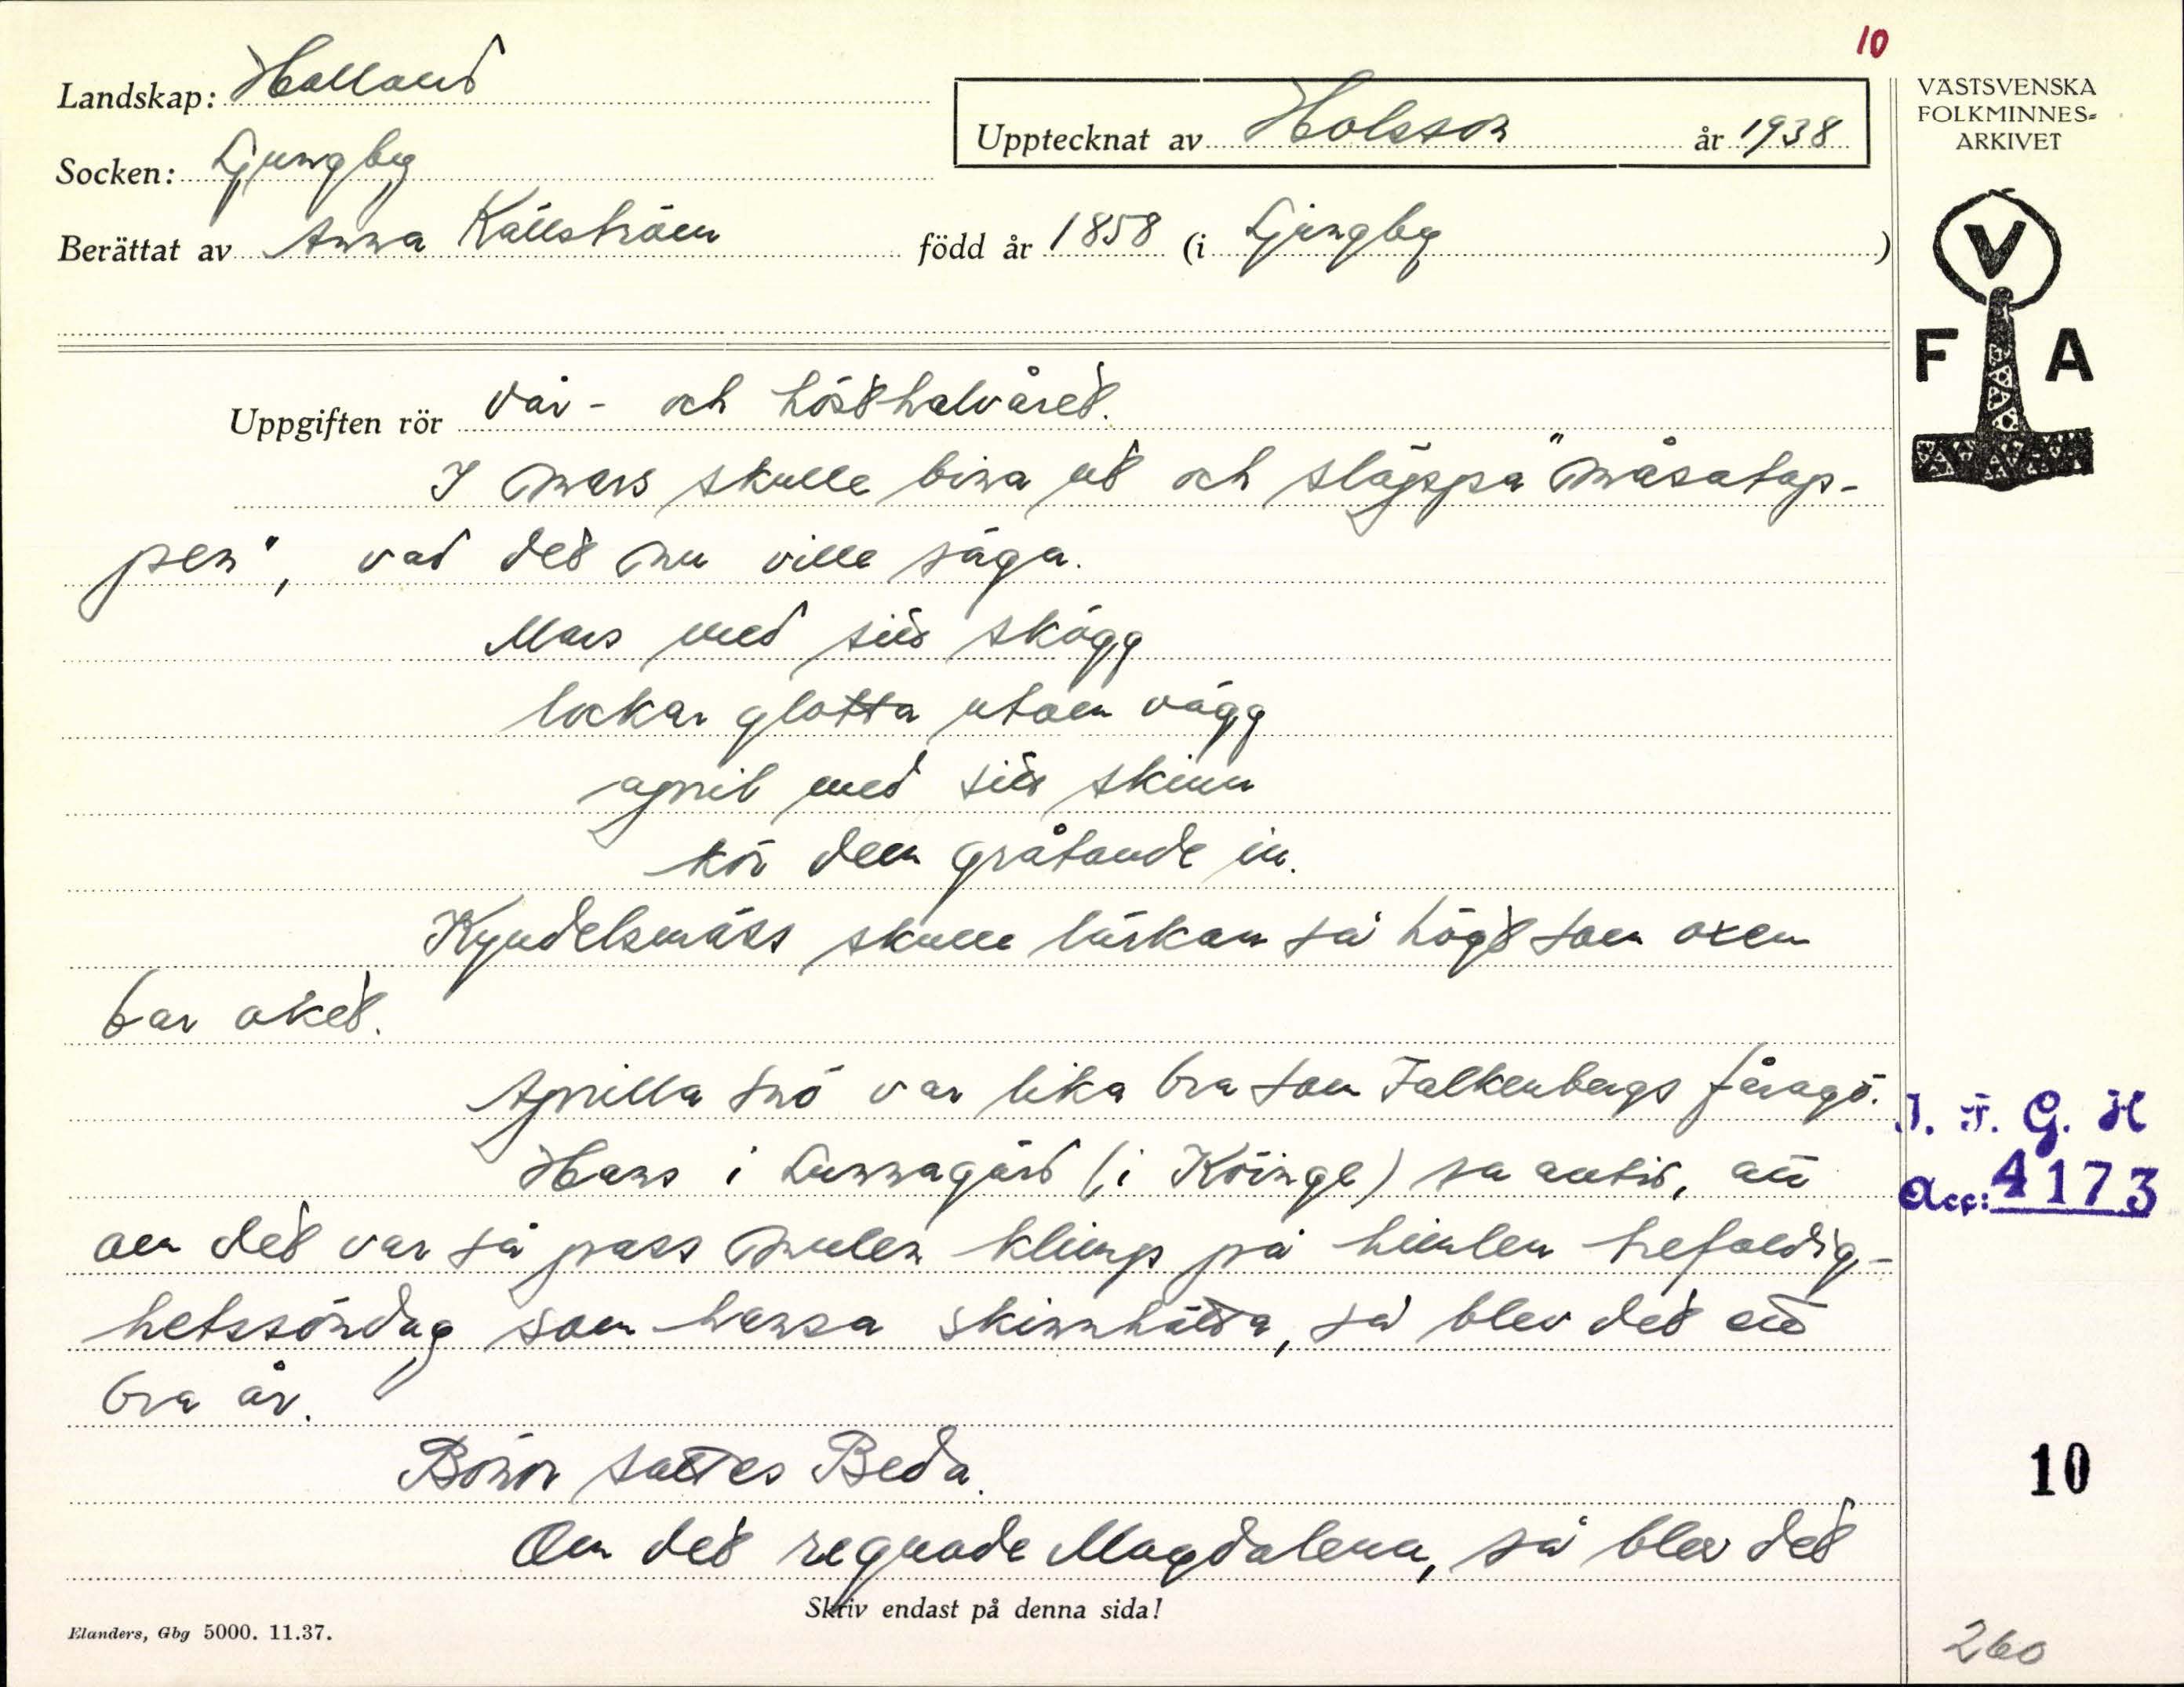 10
Landskap: Halland
Upptecknat av Holsson år 1938
VÄSTSVENSKA
FOLKMINNES=
ARKIVET
Socken: Ljungby
Berättat av Anna Källström född år 1858 (i Ljungby)
V
F A
Uppgiften rör vår- och hösthalvåret.
I mars skulle bina ut och släppa "måsatap-
pen", vad det nu ville säga.
Mars med sitt skägg
lockar glotta utom vägg
april med sitt skinn
kör dem gråtande in.
Kyndelsmäss skulle lärkan så högt som oxen
bar oket.
Aprilla snö var lika bra som Falkenbergs fåragö.
Hans i Lunnagård (i Köinge) sa alltid, att
om det var så pass mulen klimp på himlen trefaldig-
hetssöndag som hansa skinnhätta, så blev det ett
bra år.
Bönor sattes Beda.
Om det regnade Magdalena, så blev det
Skriv endast på denna sida!
Elanders, Gbg 5000. 11.37.
I. F. G. H
Acc: 4173
10
260